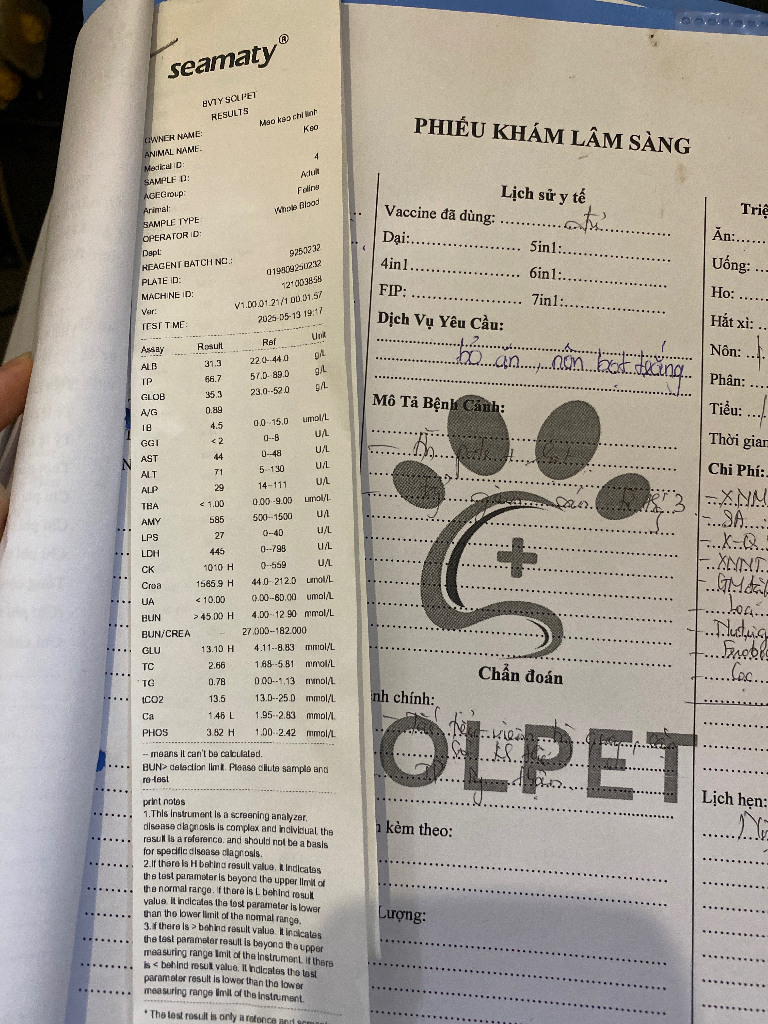 seamaty®
BVTY SOLPET
RESULTS
OWNER NAME: Mao kao chi linh
ANIMAL NAME: Kao
Medical ID:
SAMPLE ID: 4
AGEGroup: Adult
Animal: Feline
SAMPLE TYPE Whole Blood
OPERATOR ID:
Dept:
REAGENT BATCH NO.: 9250232
PLATE ID: 019809250232
MACHINE ID: 121003858
Ver: V1.00.01.21/1.00.01.57
TEST TIME: 2025-05-13 19:17
Assay Result Ref Unit
ALB 31.3 22.0--44.0 g/L
TP 66.7 57.0--89.0 g/L
GLOB 35.3 23.0--52.0 g/L
A/G 0.89
TB 4.5 0.0--15.0 umol/L
GGT < 2 0--8 U/L
AST 44 0--48 U/L
ALT 71 5--130 U/L
ALP 29 14--111 U/L
TBA < 1.00 0.00--9.00 umol/L
AMY 585 500--1500 U/L
LPS 27 0--40 U/L
LDH 445 0--798 U/L
CK 1010 H 0--559 U/L
Crea 1565.9 H 44.0--212.0 umol/L
UA < 10.00 0.00--60.00 umol/L
BUN > 45.00 H 4.00--12.90 mmol/L
BUN/CREA -- 27.000--182.000
GLU 13.10 H 4.11--8.83 mmol/L
TC 2.66 1.68--5.81 mmol/L
TG 0.78 0.00--1.13 mmol/L
tCO2 13.5 13.0--25.0 mmol/L
Ca 1.46 L 1.95--2.83 mmol/L
PHOS 3.62 H 1.00--2.42 mmol/L
-- means it can't be calculated.
BUN> detection limit. Please dilute sample and
re-test
print notes
1.This instrument is a screening analyzer,
disease diagnosis is complex and individual, the
result is a reference, and should not be a basis
for specific disease diagnosis.
2.if there is H behind result value, it indicates
the test parameter is beyond the upper limit of
the normal range, if there is L behind result
value, it indicates the test parameter is lower
than the lower limit of the normal range.
3.if there is > behind result value, it indicates
the test parameter result is beyond the upper
measuring range limit of the instrument. If there
is < behind result value, it indicates the test
parameter result is lower than the lower
measuring range limit of the instrument.
* The test result is only a refence and
PHIẾU KHÁM LÂM SÀNG
Lịch sử y tế
Vaccine đã dùng:
Dại: 5in1:
4in1 6in1:
FIP: 7in1:
Dịch Vụ Yêu Cầu:
bỏ ăn, nôn bọt trắng
Mô Tả Bệnh Cảnh:
Chẩn đoán
nh chính:
OLPET
kèm theo:
Lượng:
Triệ
Ăn:
Uống:
Ho:
Hắt xì:
Nôn:
Phân:
Tiểu:
Thời gian
Chi Phí:
- XNM
- SA
- X-Q
- XNNT
Lịch hẹn: